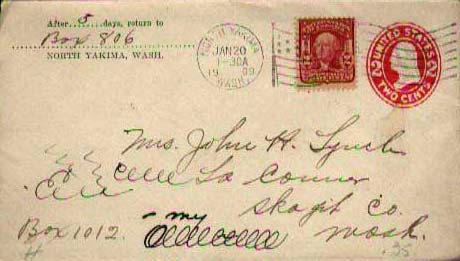 After 5 days, return to
Box 806
NORTH YAKIMA, WASH.
NORTH YAKIMA
JAN 20
1-30A
1909
WASH.
UNITED STATES
2 2
TWO CENTS
Mrs. John H. Lynch
La Conner
Skagit Co.
Wash.
Box 1012.
my